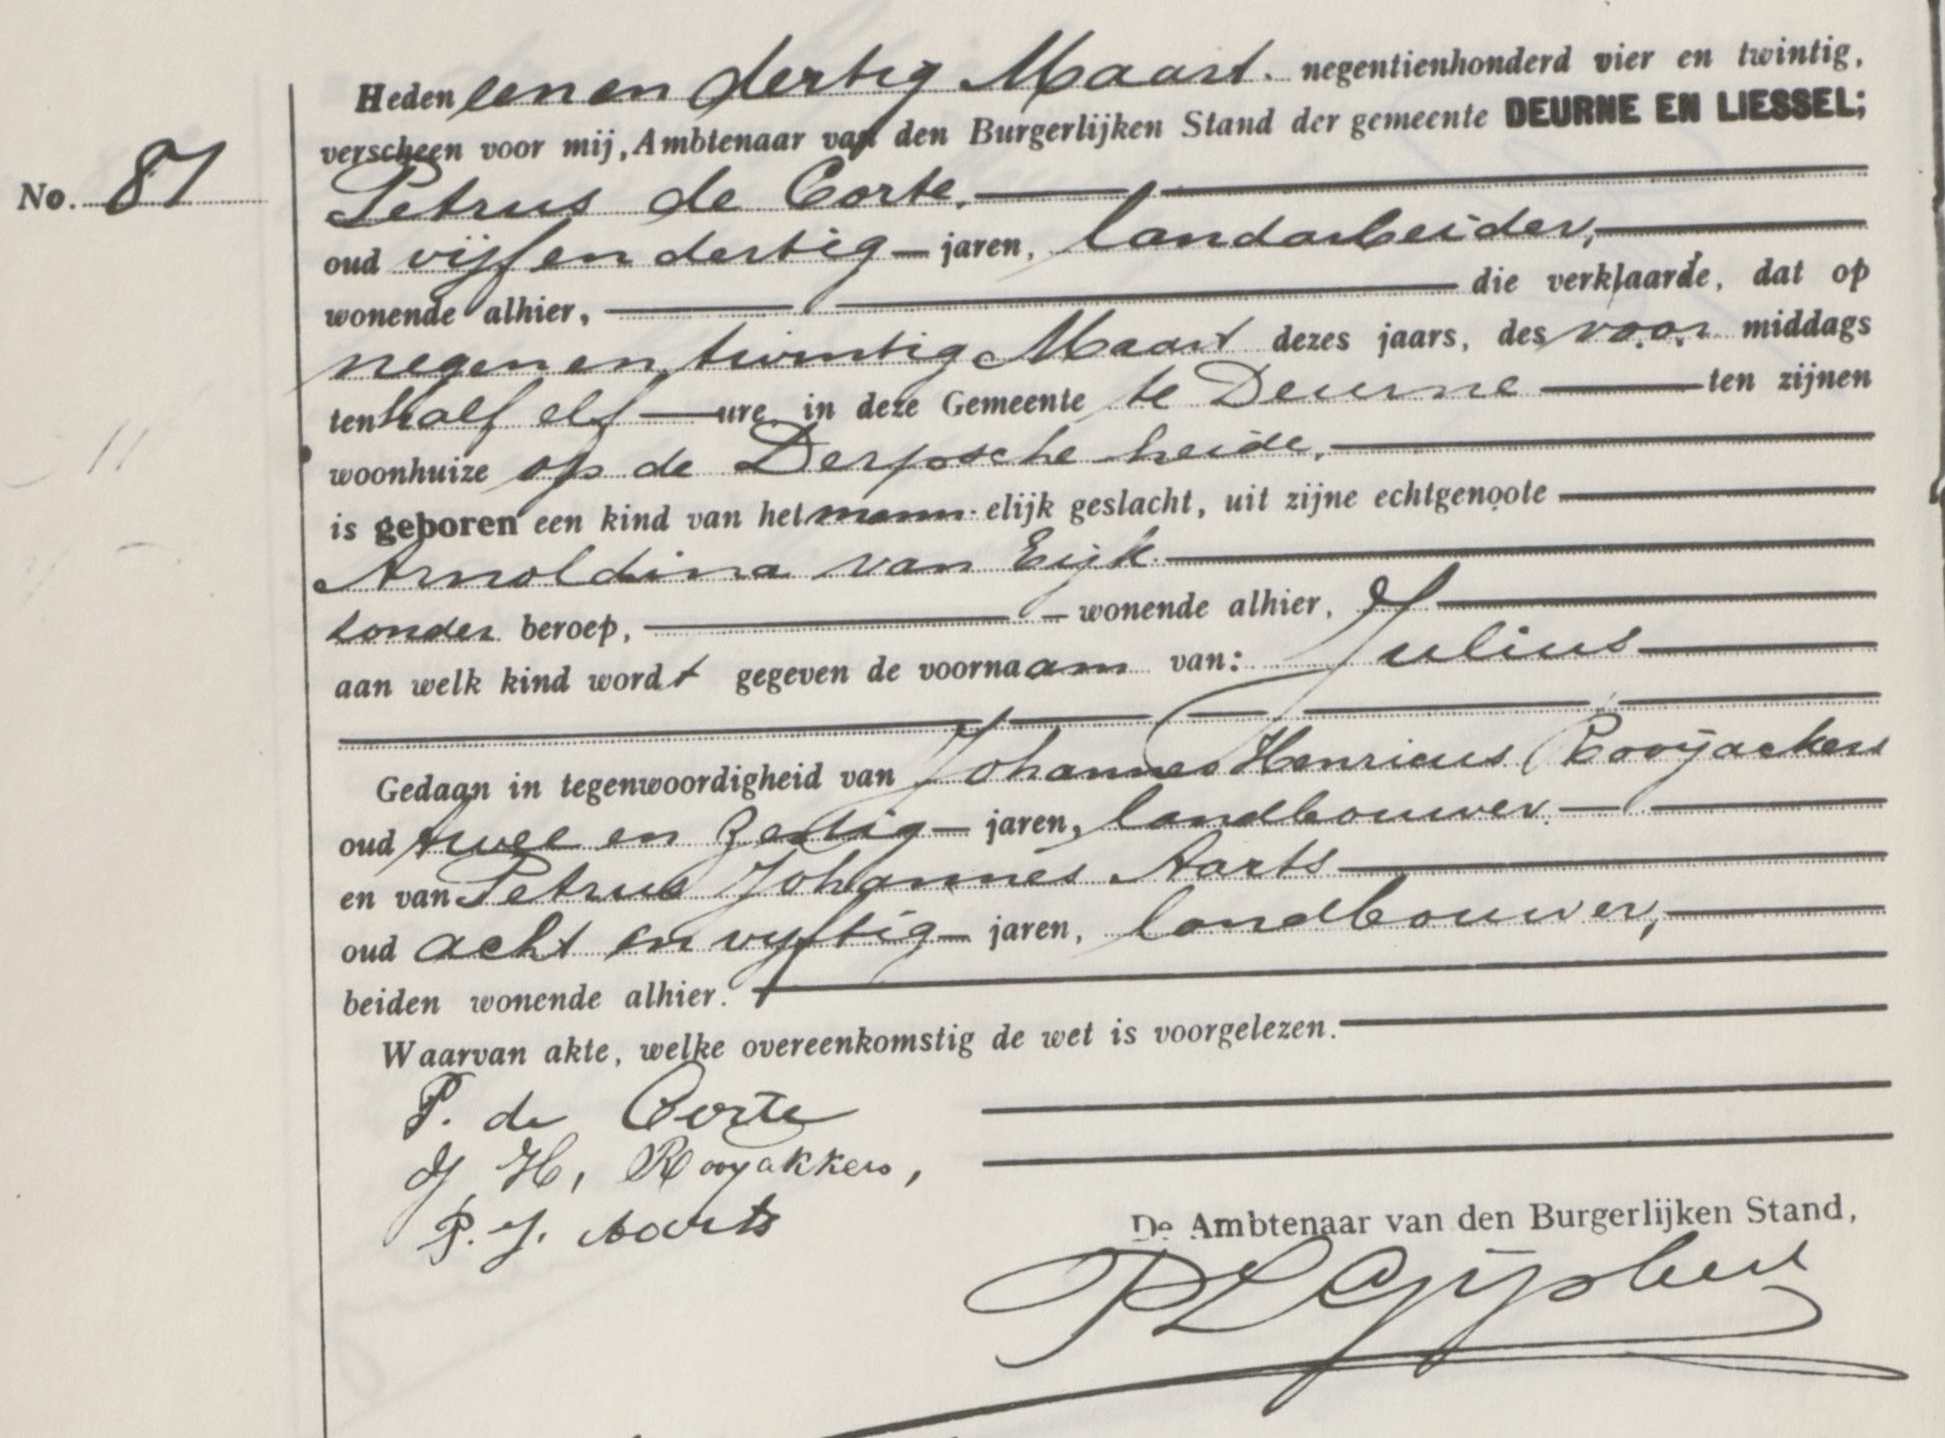 Heden eenen dertig Maart. negentienhonderd vier en twintig,
verscheen voor mij, Ambtenaar van den Burgerlijken Stand der gemeente DEURNE EN LIESSEL;
No. 87
Petrus de Corte,
oud vijf en dertig jaren, landarbeider,
wonende alhier, die verklaarde, dat op
negen en twintig Maart dezes jaars, des voor middags
ten half elf ure in deze Gemeente te Deurne ten zijnen
woonhuize op de Derpsche heide,
is geboren een kind van het mann elijk geslacht, uit zijne echtgenoote
Arnoldina van Eijk
zonder beroep, wonende alhier,
aan welk kind wordt gegeven de voornaam van: Julius
Gedaan in tegenwoordigheid van Johannes Henricus Rooijackers
oud twee en zestig jaren, landbouwer
en van Petrus Johannes Aarts
oud acht en vyftig jaren, landbouwer,
beiden wonende alhier.
Waarvan akte, welke overeenkomstig de wet is voorgelezen.
P. de Corte
J. H. Rooyakkers,
P. J. Aarts
De Ambtenaar van den Burgerlijken Stand,